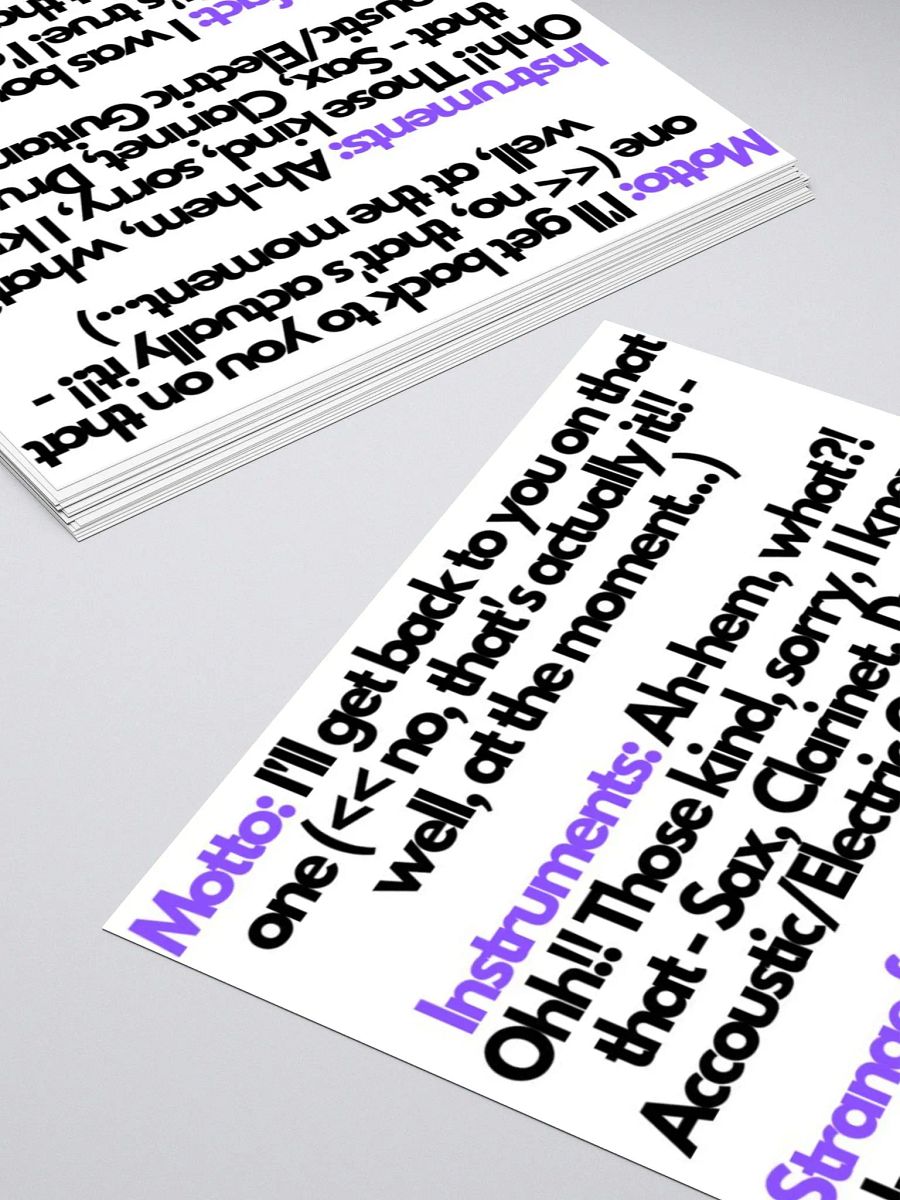 Motto: I'll get back to you on that
one (<< no, that's actually it!! -
well, at the moment...)
Instruments: Ah-hem, what
Ohh!! Those kind, sorry, I
that - Sax, Clarinet,
Electric Guitar
fact: I was
true!
Motto: I'll get back to you on that
one (<< no, that's actually it!! -
well, at the moment...)
Instruments: Ah-hem, what?!
Ohh!! Those kind, sorry, I
that - Sax, Clarinet,
Accoustic/Electric
Strange